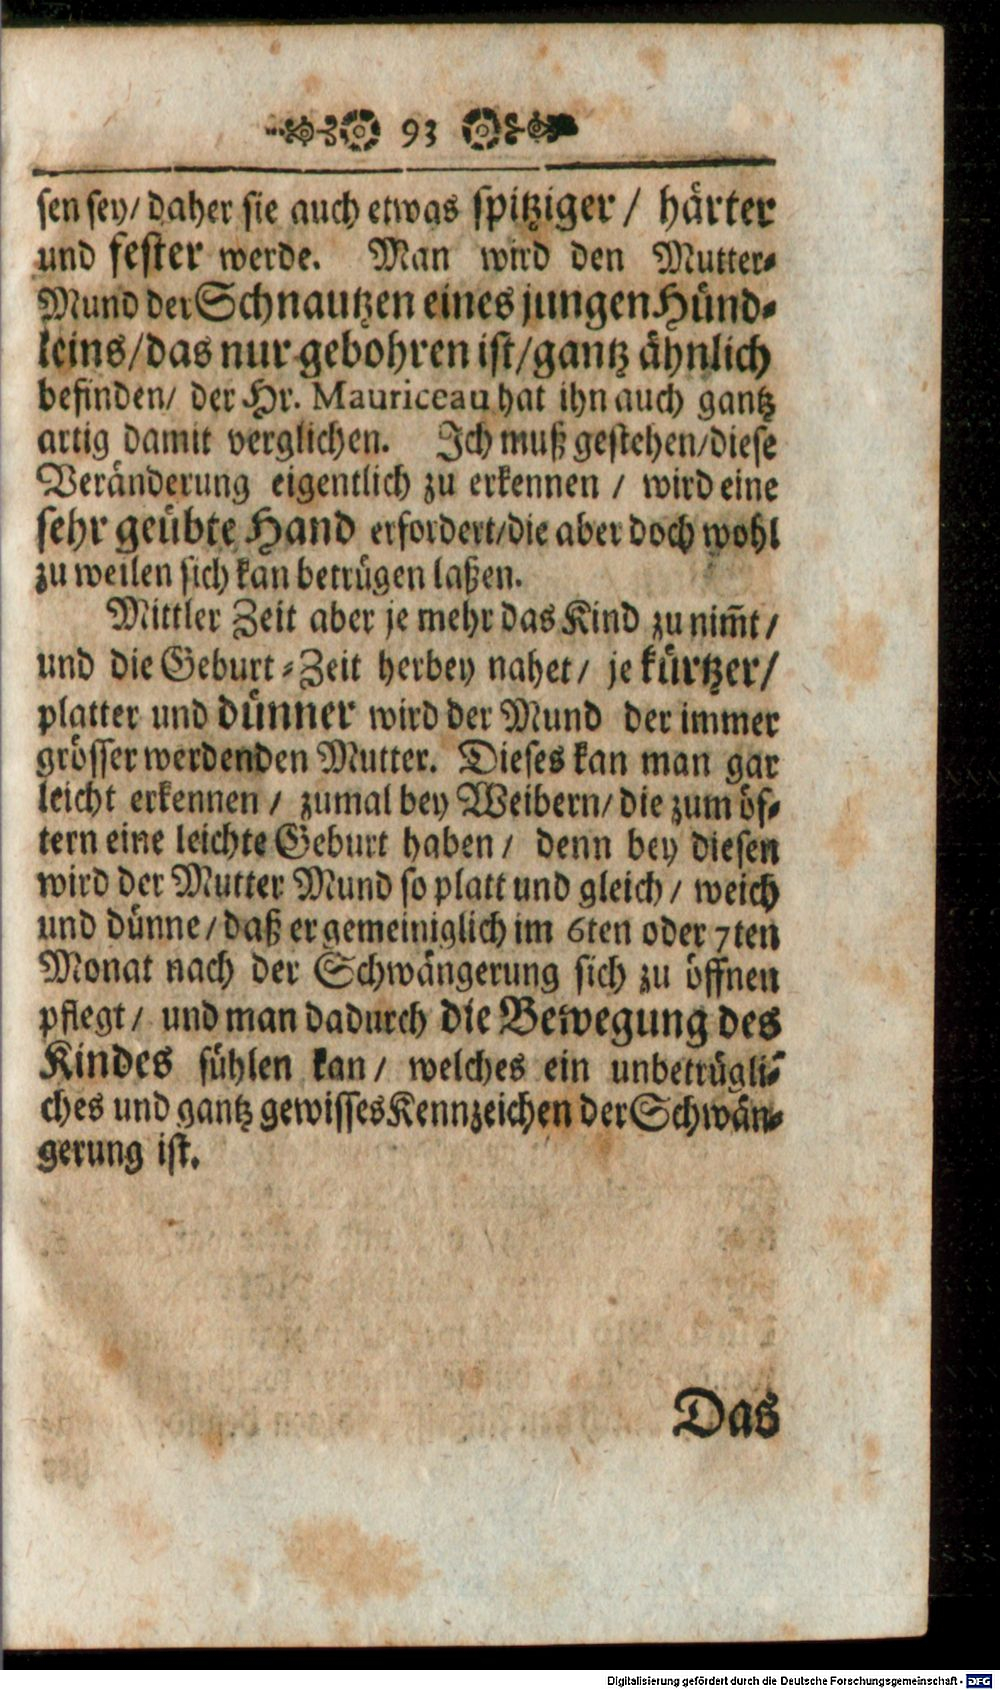 93
sen sey/ daher sie auch etwas spitziger / härter
und fester werde. Man wird den Mutter-
Mund der Schnautzen eines jungen Hünd-
leins/das nur gebohren ist/gantz ähnlich
befinden/ der Hr. Mauriceau hat ihn auch gantz
artig damit verglichen. Ich muß gestehen/diese
Veränderung eigentlich zu erkennen / wird eine
sehr geübte Hand erfordert/die aber doch wohl
zu weilen sich kan betrügen laßen.
Mittler Zeit aber je mehr das Kind zu nim̃t /
und die Geburt-Zeit herbey nahet / je kürtzer /
platter und dünner wird der Mund der immer
grösser werdenden Mutter. Dieses kan man gar
leicht erkennen / zumal bey Weibern/ die zum öf-
tern eine leichte Geburt haben / denn bey diesen
wird der Mutter Mund so platt und gleich / weich
und dünne / daß er gemeiniglich im 6ten oder 7ten
Monat nach der Schwängerung sich zu öffnen
pflegt / und man dadurch die Bewegung des
Kindes fühlen kan / welches ein unbetrügli-
ches und gantz gewisses Kennzeichen der Schwän-
gerung ist.
Das
Digitalisierung gefördert durch die Deutsche Forschungsgemeinschaft - DFG